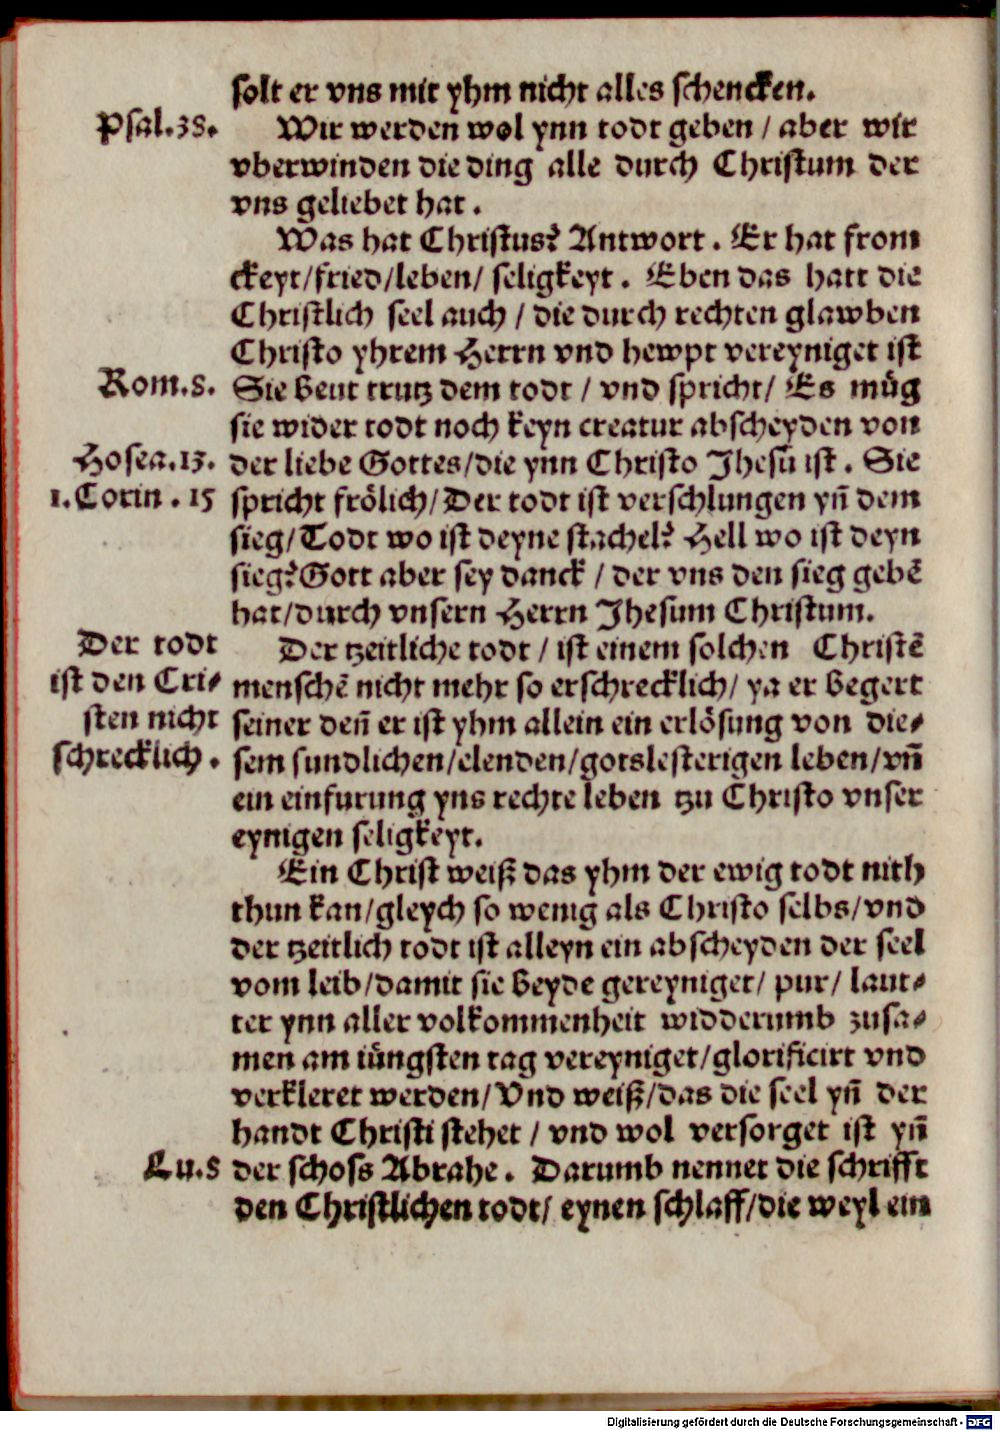 solt er vns mit yhm nicht alles schencken.
Psal.38.
Wir werden wol ynn todt geben / aber wir
vberwinden die ding alle durch Christum der
vns geliebet hat.
Was hat Christus? Antwort. Er hat from
ckeyt/fried/leben/ seligkeyt. Eben das hatt die
Christlich seel auch / die durch rechten glawben
Christo yhrem Herrn vnd hewpt vereyniget ist
Rom.8.
Sie beut trutz dem todt / vnd spricht/ Es műg
sie wider todt noch keyn creatur abscheyden von
Hosea.13.
der liebe Gottes/die ynn Christo Jhesū ist. Sie
1.Corin.15
spricht frőlich/Der todt ist verschlungen yn̄ dem
sieg/Todt wo ist deyne stachel? Hell wo ist deyn
sieg?Gott aber sey danck / der vns den sieg gebē
hat/durch vnsern Herrn Jhesum Christum.
Der todt
ist den Cri-
sten nicht
schrecklich.
Der tzeitliche todt / ist einem solchen Christē
menschē nicht mehr so erschrecklich/ ya er begert
seiner den̄ er ist yhm allein ein erlősung von die-
sem sundlichen/elenden/gotslesterigen leben/vn̄
ein einfurung yns rechte leben tzu Christo vnser
eynigen seligkeyt.
Ein Christ weiß das yhm der ewig todt nith
thun kan/gleych so wenig als Christo selbs/vnd
der tzeitlich todt ist alleyn ein abscheyden der seel
vom leib/damit sie beyde gereyniget/ pur/ laut-
ter ynn aller volkommenheit widderumb zusa-
men am iűngsten tag vereyniget/glorificirt vnd
verkleret werden/Vnd weiß/das die seel yn̄ der
handt Christi stehet / vnd wol versorget ist yn̄
Lu.8
der schoss Abrahe. Darumb nennet die schrifft
den Christlichen todt/ eynen schlaff/die weyl ein
Digitalisierung gefördert durch die Deutsche Forschungsgemeinschaft - DFG